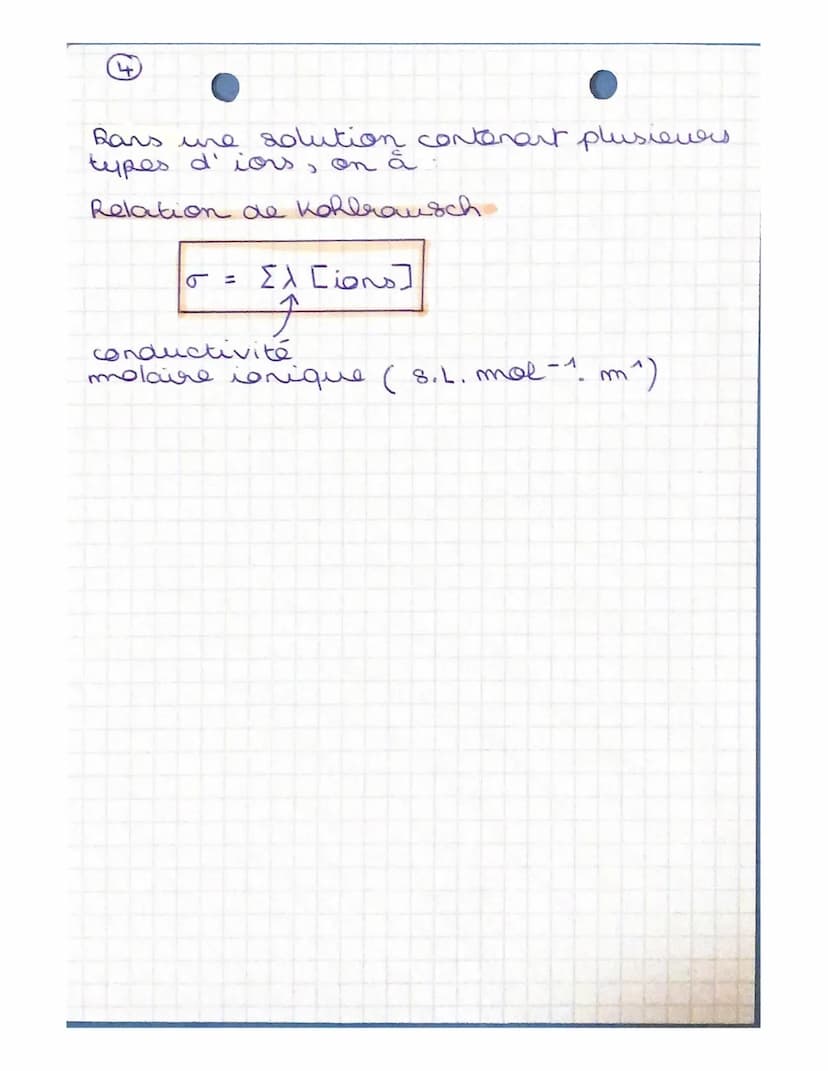 4
Dans une solution contenant plusieurs
types d'ions, on à :
Relation de Kohlrausch
σ = Σλ [ions]
conductivité
molaire ionique ( S.L. mol⁻¹. m¹)